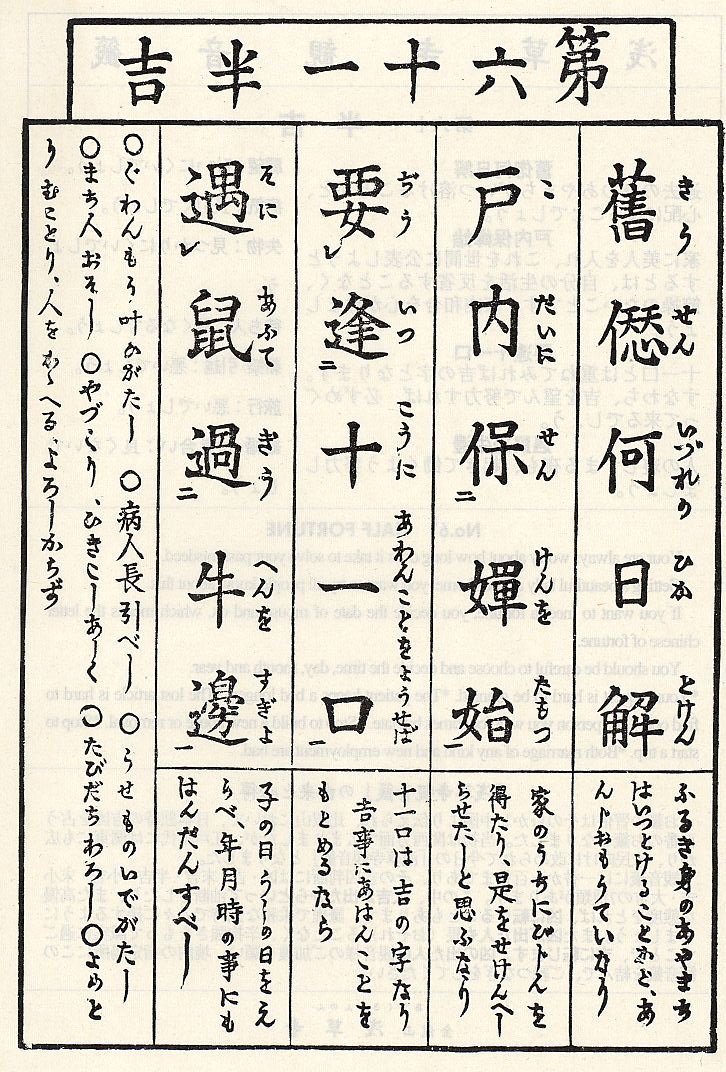 第六十一半吉
きうせんいづれのひかとけん
舊愆何日解
ふるき身のあやまち
はいつとけるとかと、あ
んじおもうていなり
こだいにせんけんをたもつ
戸内保嬋始
家のうちにびじんを
得たり是をせけんへし
らせたしと思ふなり
ぢういつこうにあわんことをようせば
要逢十一口
十口は吉の字なり
吉事にあはんことを
もとめるなら
そにあふてぎうへんをすぎよ
遇鼠過牛邊
子の日うしの日をえ
らべ、年月時の事にも
はんだんすべし
○ぐわんもう叶ひがたし ○病人長引べし ○うせものいでがたし
○まち人おそし ○やづくり、ひきこしあしく ○たびだちわろし ○よめと
りむことり、人をかゝへるよろしからず